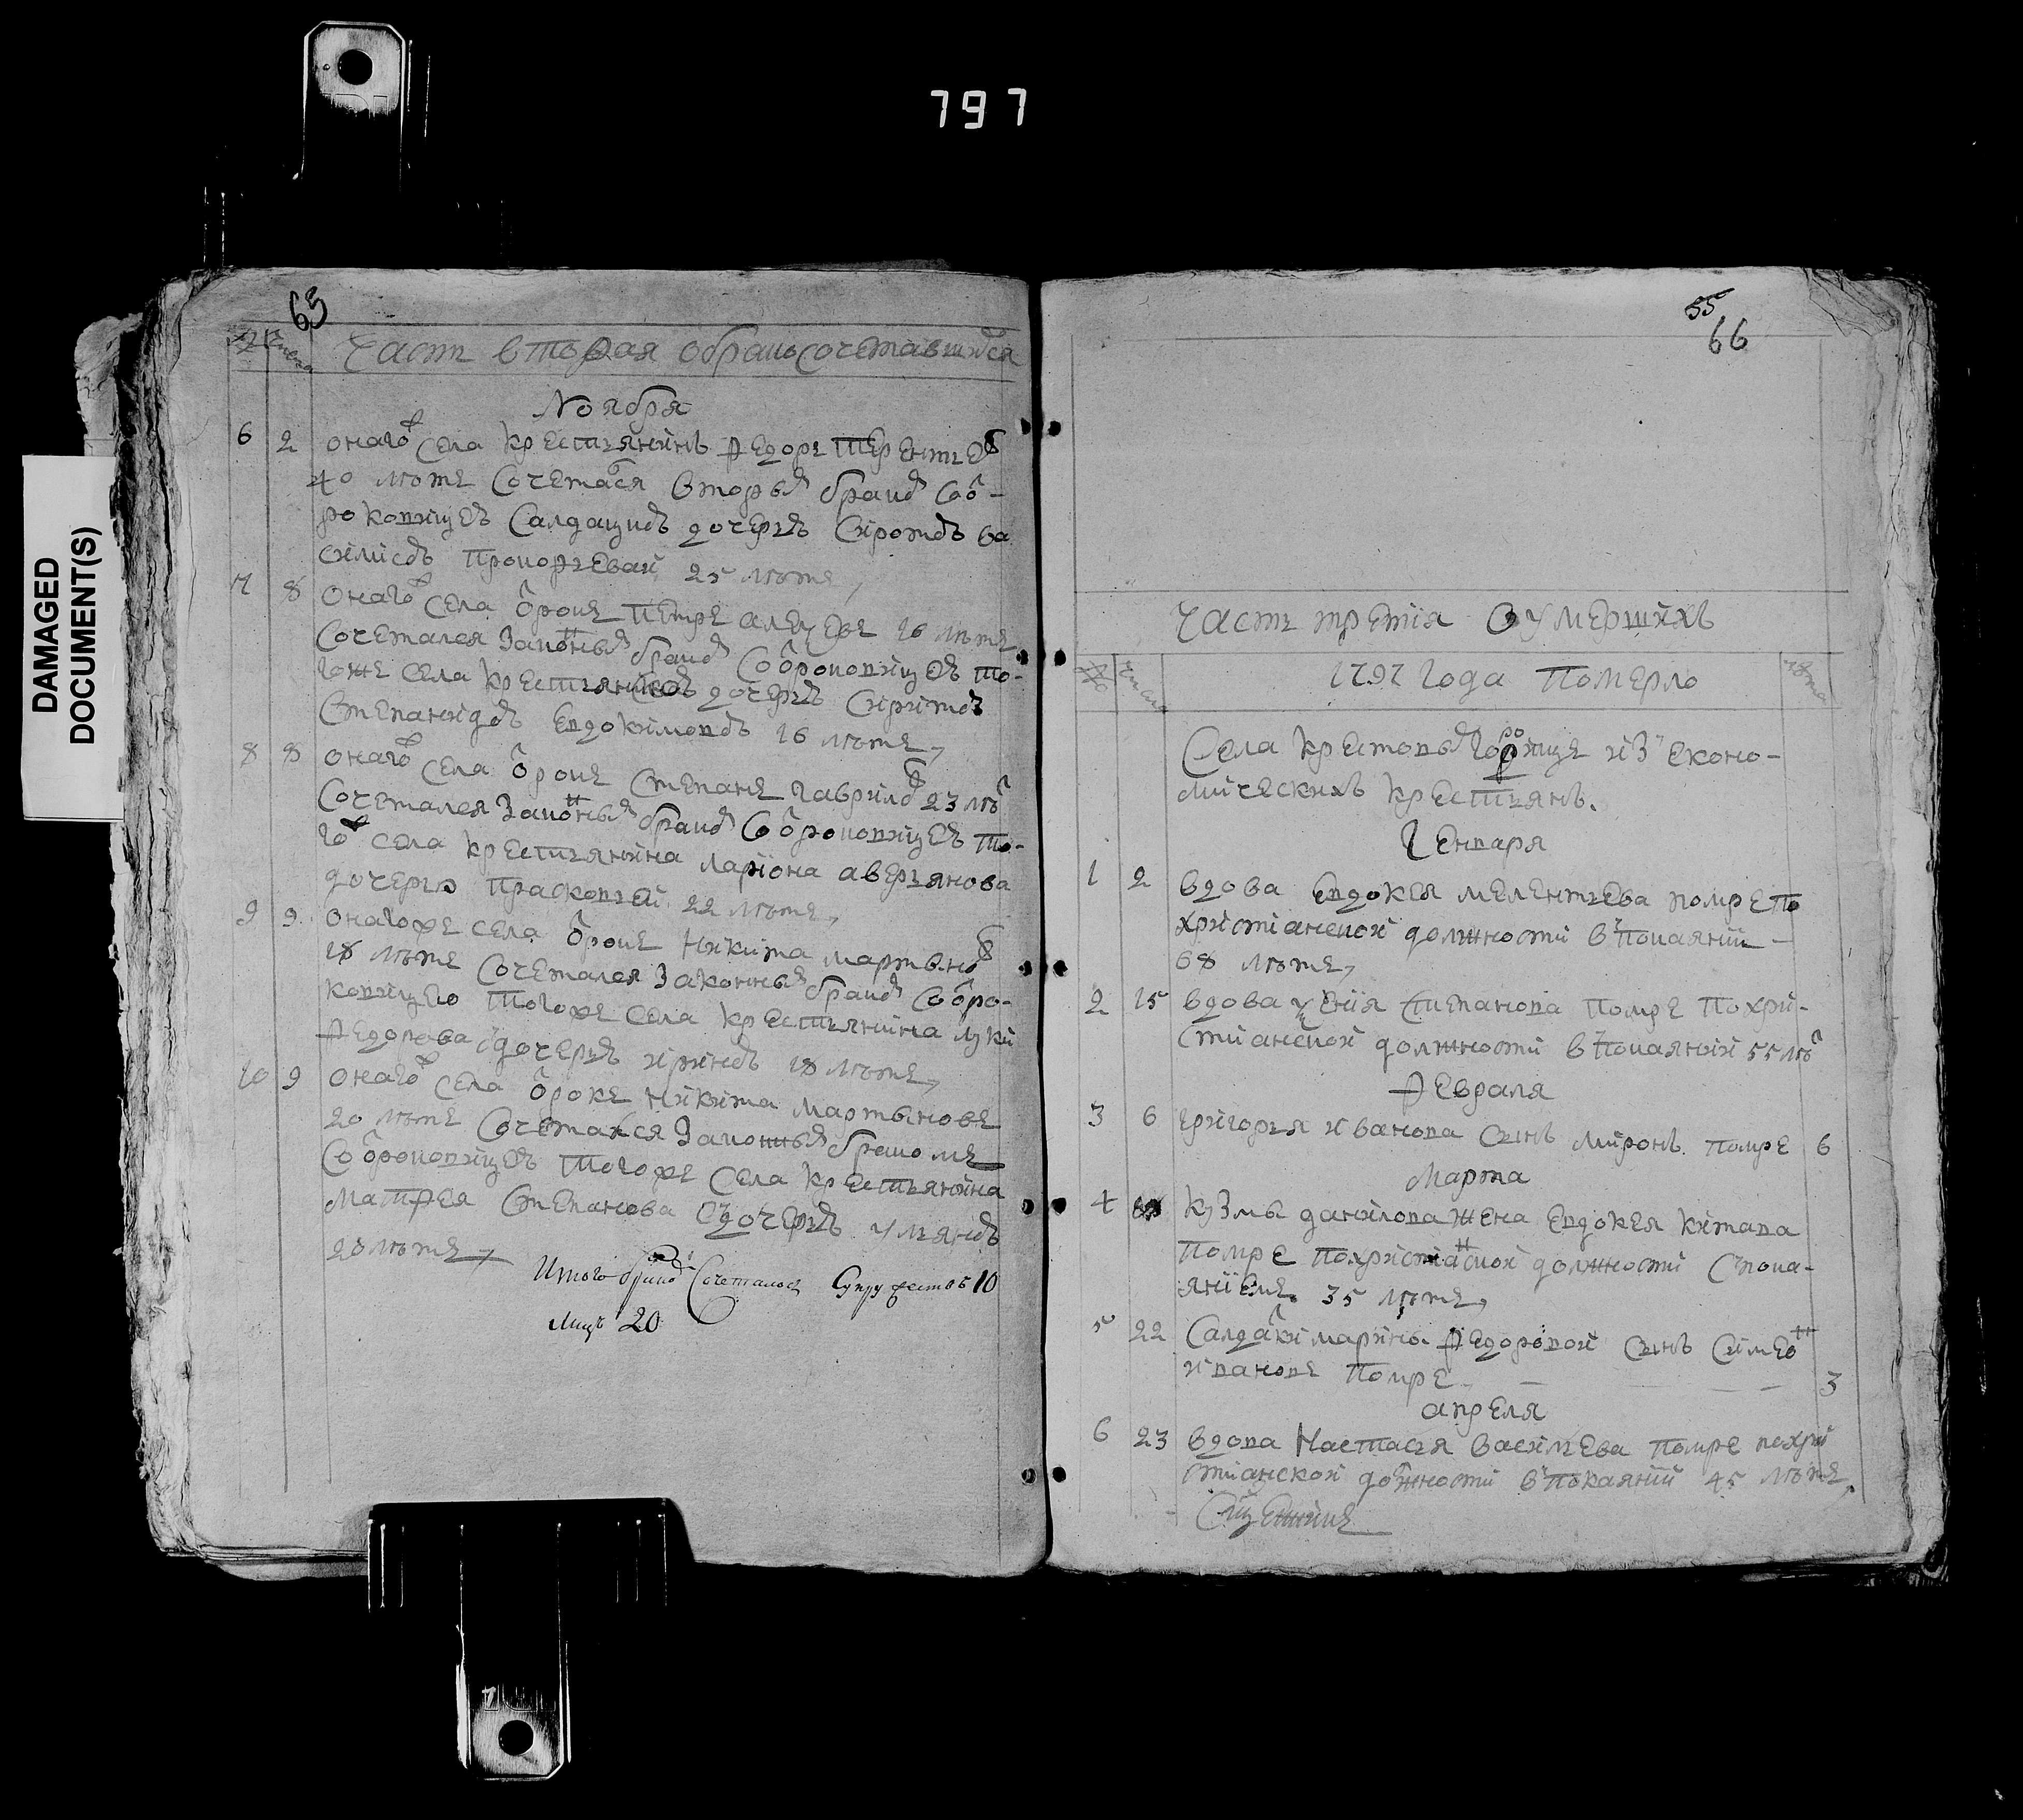 797
DAMAGED
DOCUMENT(S)
63
№ числа
Часть вторая о бракосочетавшихся
Ноября
6 2 онаго села крестьянинъ Федоръ Терентьев
40 летъ сочетася вторы браком со о-
роковицеъ салдацкъ дочерью сиротъ ва
силисъ Прокофьевай 25 летъ,
7 8 онагож села отрокъ Петръ 16 летъ
сочетался законны браком со отроковицеъ то-
гоже села дочеръ
Степанидъ Евдокимовъ 16 летъ,
8 8 онагож села отрокъ Степанъ Гаврилов 23 ле
сочетался законны браком со отроковицеъ то-
гож села крестьянина Лариона Аверьянова
дочерью Прасковьей 22 летъ,
9 9 онагоже села отрокъ Никита Мартынов
18 летъ сочетался законны браком со отро-
ковицею тогоже села крестьянина Луки
Федорова дочеръ Иринъ 18 летъ,
10 9 онагож села отрокъ Никита Мартыновъ
20 летъ сочетался законны бракомъ
со отроковицеъ тогоже села крестьянина
Матфея Степанова з дочеръ Ульянъ
20 летъ,
Итого браком сочеталось супружествъ 10
лицъ 20
55
66
Часть третїя О умершихъ
№ числа
1797 года Померло
лета
Села Крестовы Городищъ из еконо-
мическихъ крестьянъ.
Генваря
1 2 вдова Евдокея Мелентьева помре по
христїанской должности в покаянии
68 летъ,
2 15 вдова Степанова помре по хри-
стианской должности в покаянии 55 ле
Февраля
3 6 Григорья Иванова сынъ Миронъ помре 6
Марта
4 Кузмы Данилова жена Евдокея
помре по христианской должности с пока-
янїемъ 35 летъ,
5 22 Салдатки Марины Федоровой сынъ Симеон
Ивановъ помре 3
апреля
6 23 вдова Настасья Васильева помре по хри
стианской должности в покаянии 45 летъ,
Священникъ